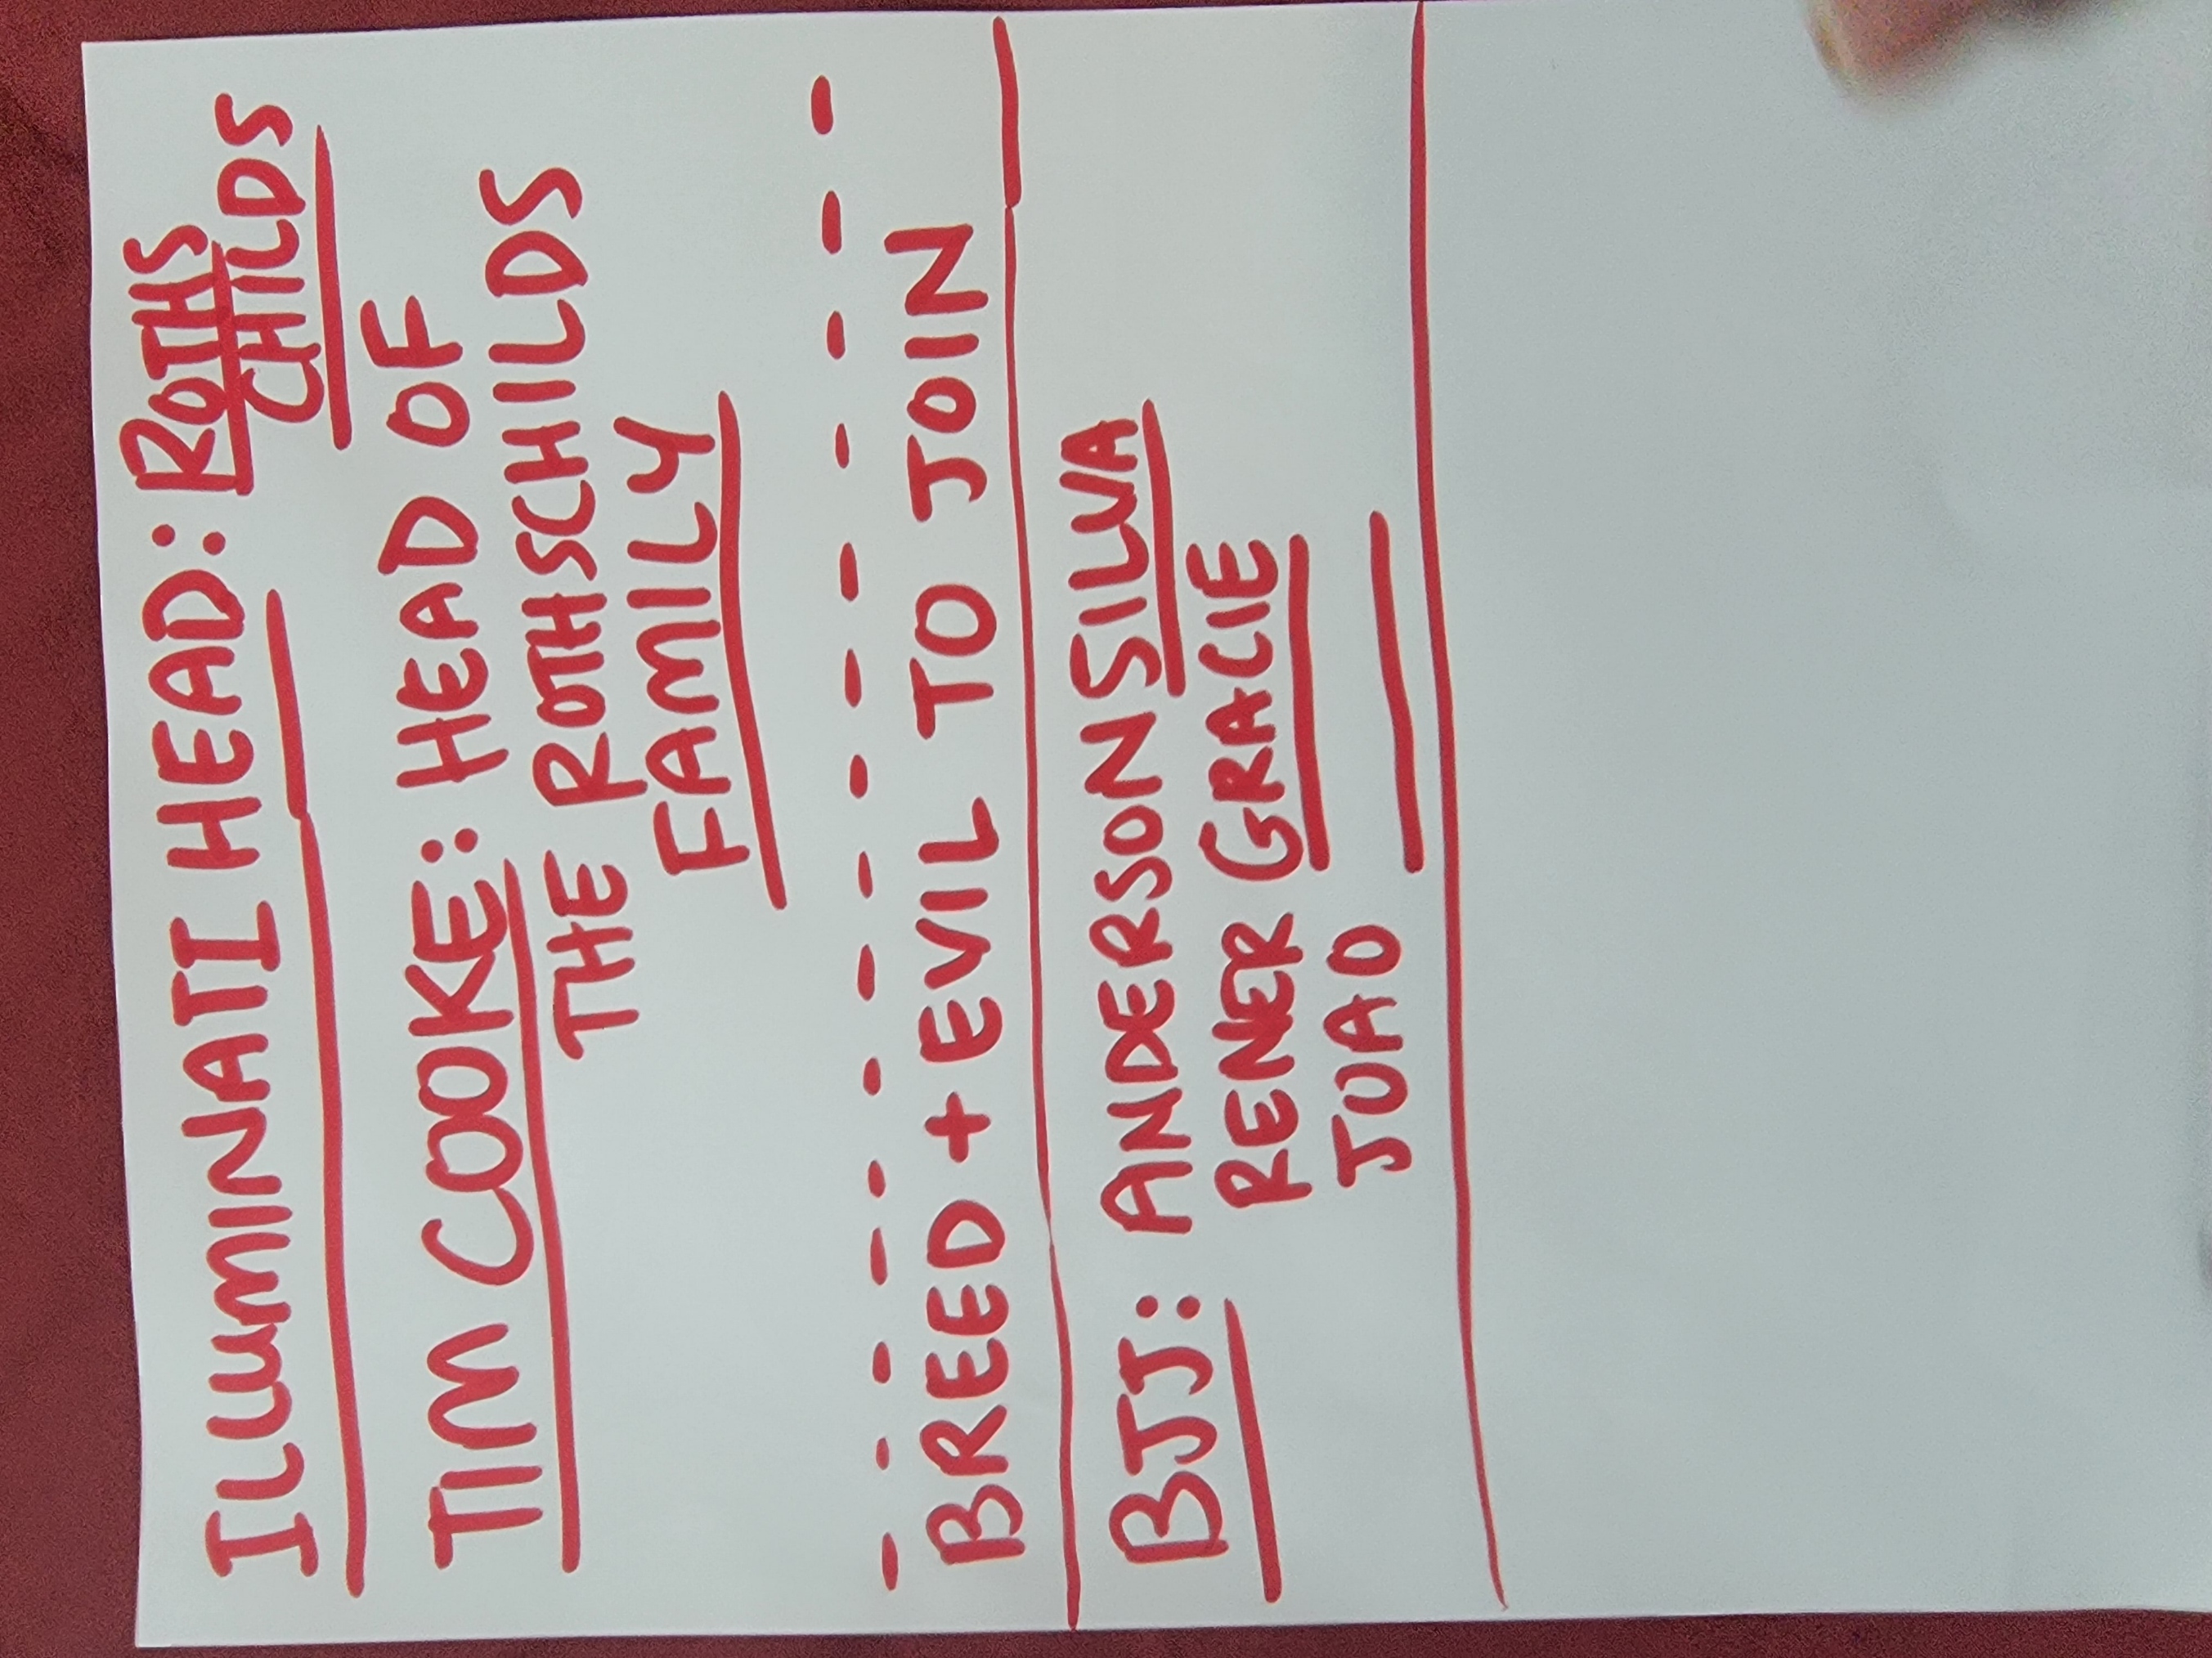 ILLUMINATI HEAD: ROTHS
CHILDS
TIM COOKE: HEAD OF
THE ROTHSCHILDS
FAMILY
BREED + EVIL TO JOIN
BJJ: ANDERSON SILVA
RENER GRACIE
JOAO